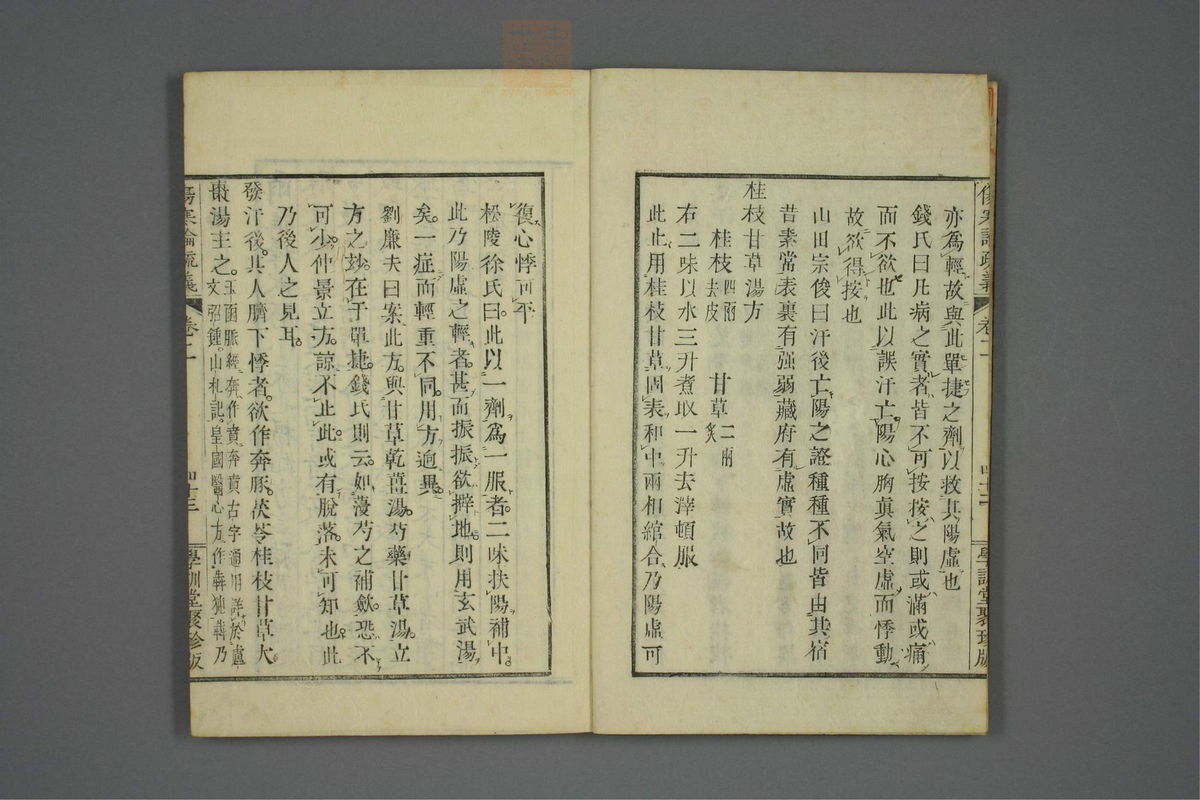 亦為輕故與此單捷之劑以救其陽虛也
錢氏曰凡病之實者皆不可按按之則或滿或痛
而不欲也此以誤汗亡陽心胸真氣空虛而悸動
故欲得按也
山田宗俊曰汗後亡陽之證種種不同皆由其宿
昔素常表裏有强弱藏府有虛實故也
桂枝甘草湯方
桂枝四兩去皮 甘草二兩炙
右二味以水三升煮取一升去滓頓服
此止用桂枝甘草固表和中兩相綰合乃陽虛可
復心悸可平
松陵徐氏曰此以一劑為一服者二味扶陽補中
此乃陽虛之輕者甚而振振欲擗地則用玄武湯
矣一症而輕重不同用方迥異
劉廉夫曰案此方與甘草乾薑湯芍藥甘草湯立
方之玅在于單捷錢氏則云如蔘芍之補斂恐不
可少仲景立方諒不止此或有脫落未可知也此
乃後人之見耳
發汗後其人臍下悸者欲作奔豚茯苓桂枝甘草大
棗湯主之玉函脈經奔作賁奔賁古字通用詳於盧
文弨鍾山札記皇國醫心方作犇㹠犇乃
傷寒論疏義 卷二 四十三 學訓堂聚珍版